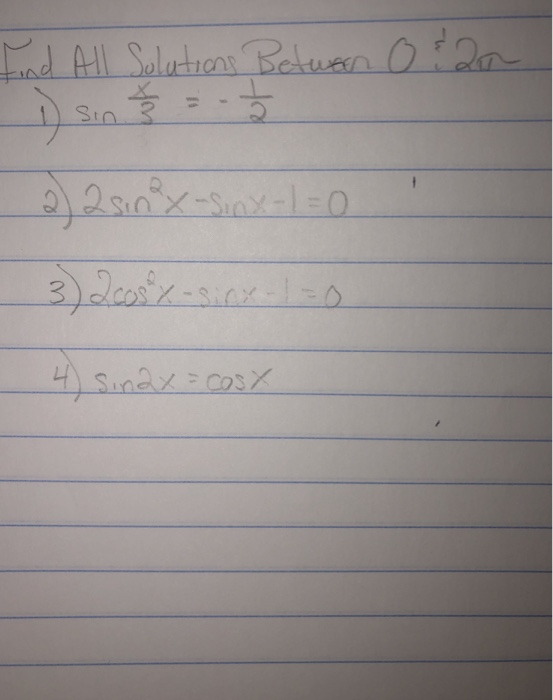 Find All Solutions Between 0 & 2π
1) sin x/3 = -1/2
2) 2sin²x-sinx-1=0
3) 2cos²x-sinx-1=0
4) sin2x=cosx